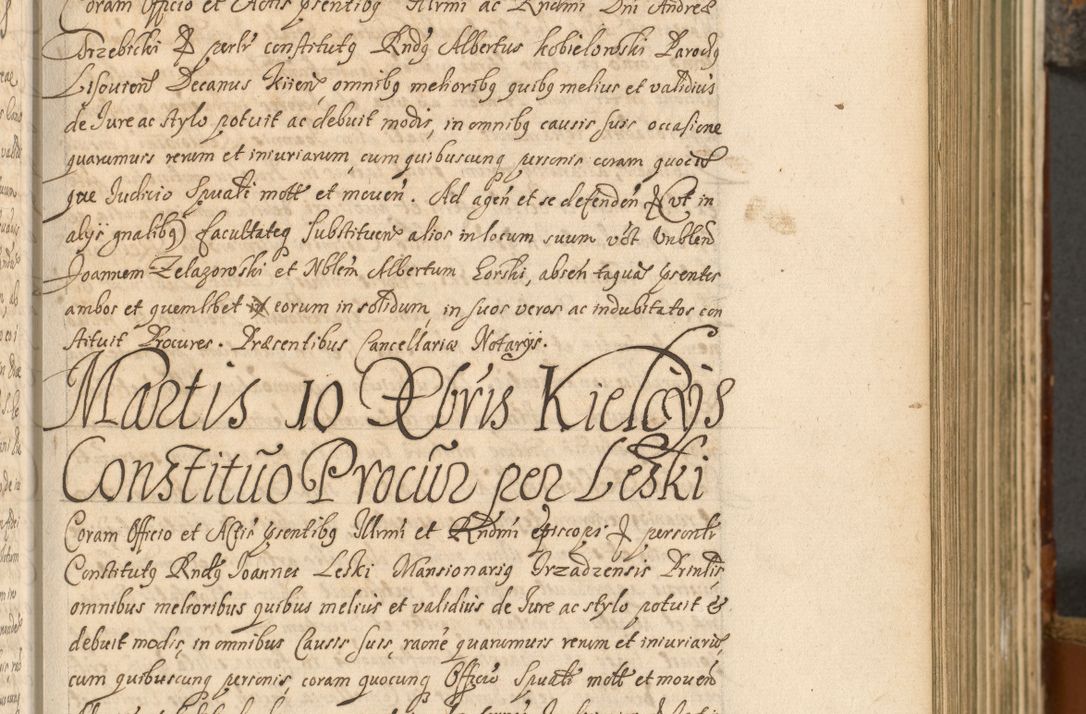 Coram Officio et Actis psentibg Illrmi ac Rndmi Dni Andreæ
Trzebicki & perlr constitutg Rndg Albertus Kobielowski Parochg
Lisovien Decanus Kiien, omnibg melioribg quibg melius et validius
de Iure ac stylo potuit ac debuit modis, in omnibg causis suis occasione
quarumuis rerum et iniuriarum, cum quibuscunq personis coram quocun
que Iudicio Spuali mott et mouen. Ad agen et se defenden & vt in
alijs gnalibg) facultateq Substituen alios in locum suum vzt Vnblem
Joannem Zelazowski et Nblem Albertum Gorski, absen taqua psentes
ambos et quemlibet eorum in solidum, in suos veros ac indubitatos con
stituit Procures. Præsentibus Cancellariæ Notarijs.
Martis 10 Xbris Kielcijs
Constituo Procur per Leski
Coram Officio et Actis psentibg Illrmi et Rndmi episcopi & personlr
Constitutg Rndg Joannes Leski Mansionarig Vrzadzensis Prntis
omnibus melioribus quibus melius et validius de Iure ac stylo potuit &
debuit modis, in omnibus Causis suis, raone quarumuis rerum et iniuriaru,
cum quibuscunq personis, coram quocunq Officio Spuali mott et mouen